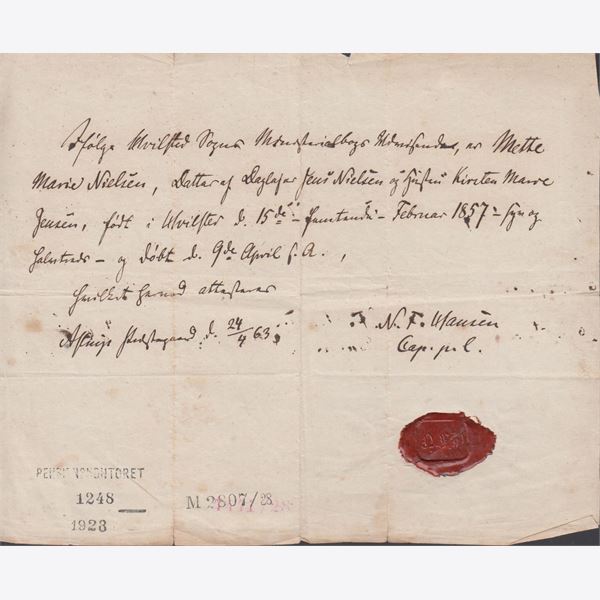 Ifølge Hvilsted Sogns Ministerialbogs Udvisende, er Mette
Marie Nielsen, Datter af Daglejer Jens Nielsen og Hustru Kirsten Marie
Jensen, født i Hvilsted d. 15de – femtende – Februar 1857 – syv og
halvtreds – og døbt d. 9de April s. A.,
hvilket herved attesteres
Præstegaard d. 24/4 63
N. F. Hansen
Cap. p. l.
PENSIONSKONTORET
1248
1928
M 2807/28